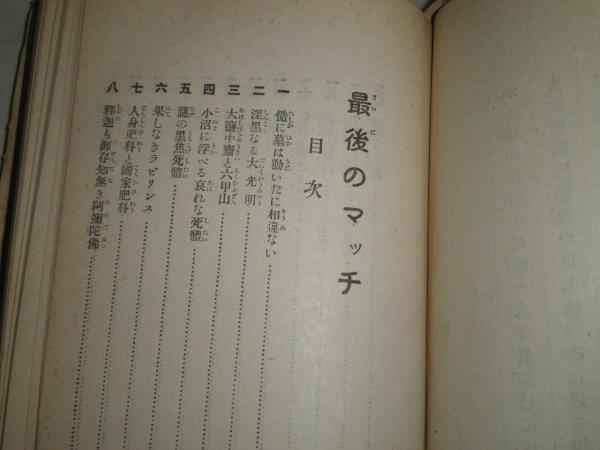 最後のマッチ
目次
一 慥に墓は動いたに相違ない
二 深黒なる大光明
三 大鹽中齋と六甲山
四 小沼に浮べる哀れな死體
五 謎の黒焦死體
六 果しなきラビリンス
七 人身肥料と國家肥料
八 釋迦も御存知無き阿彌陀佛